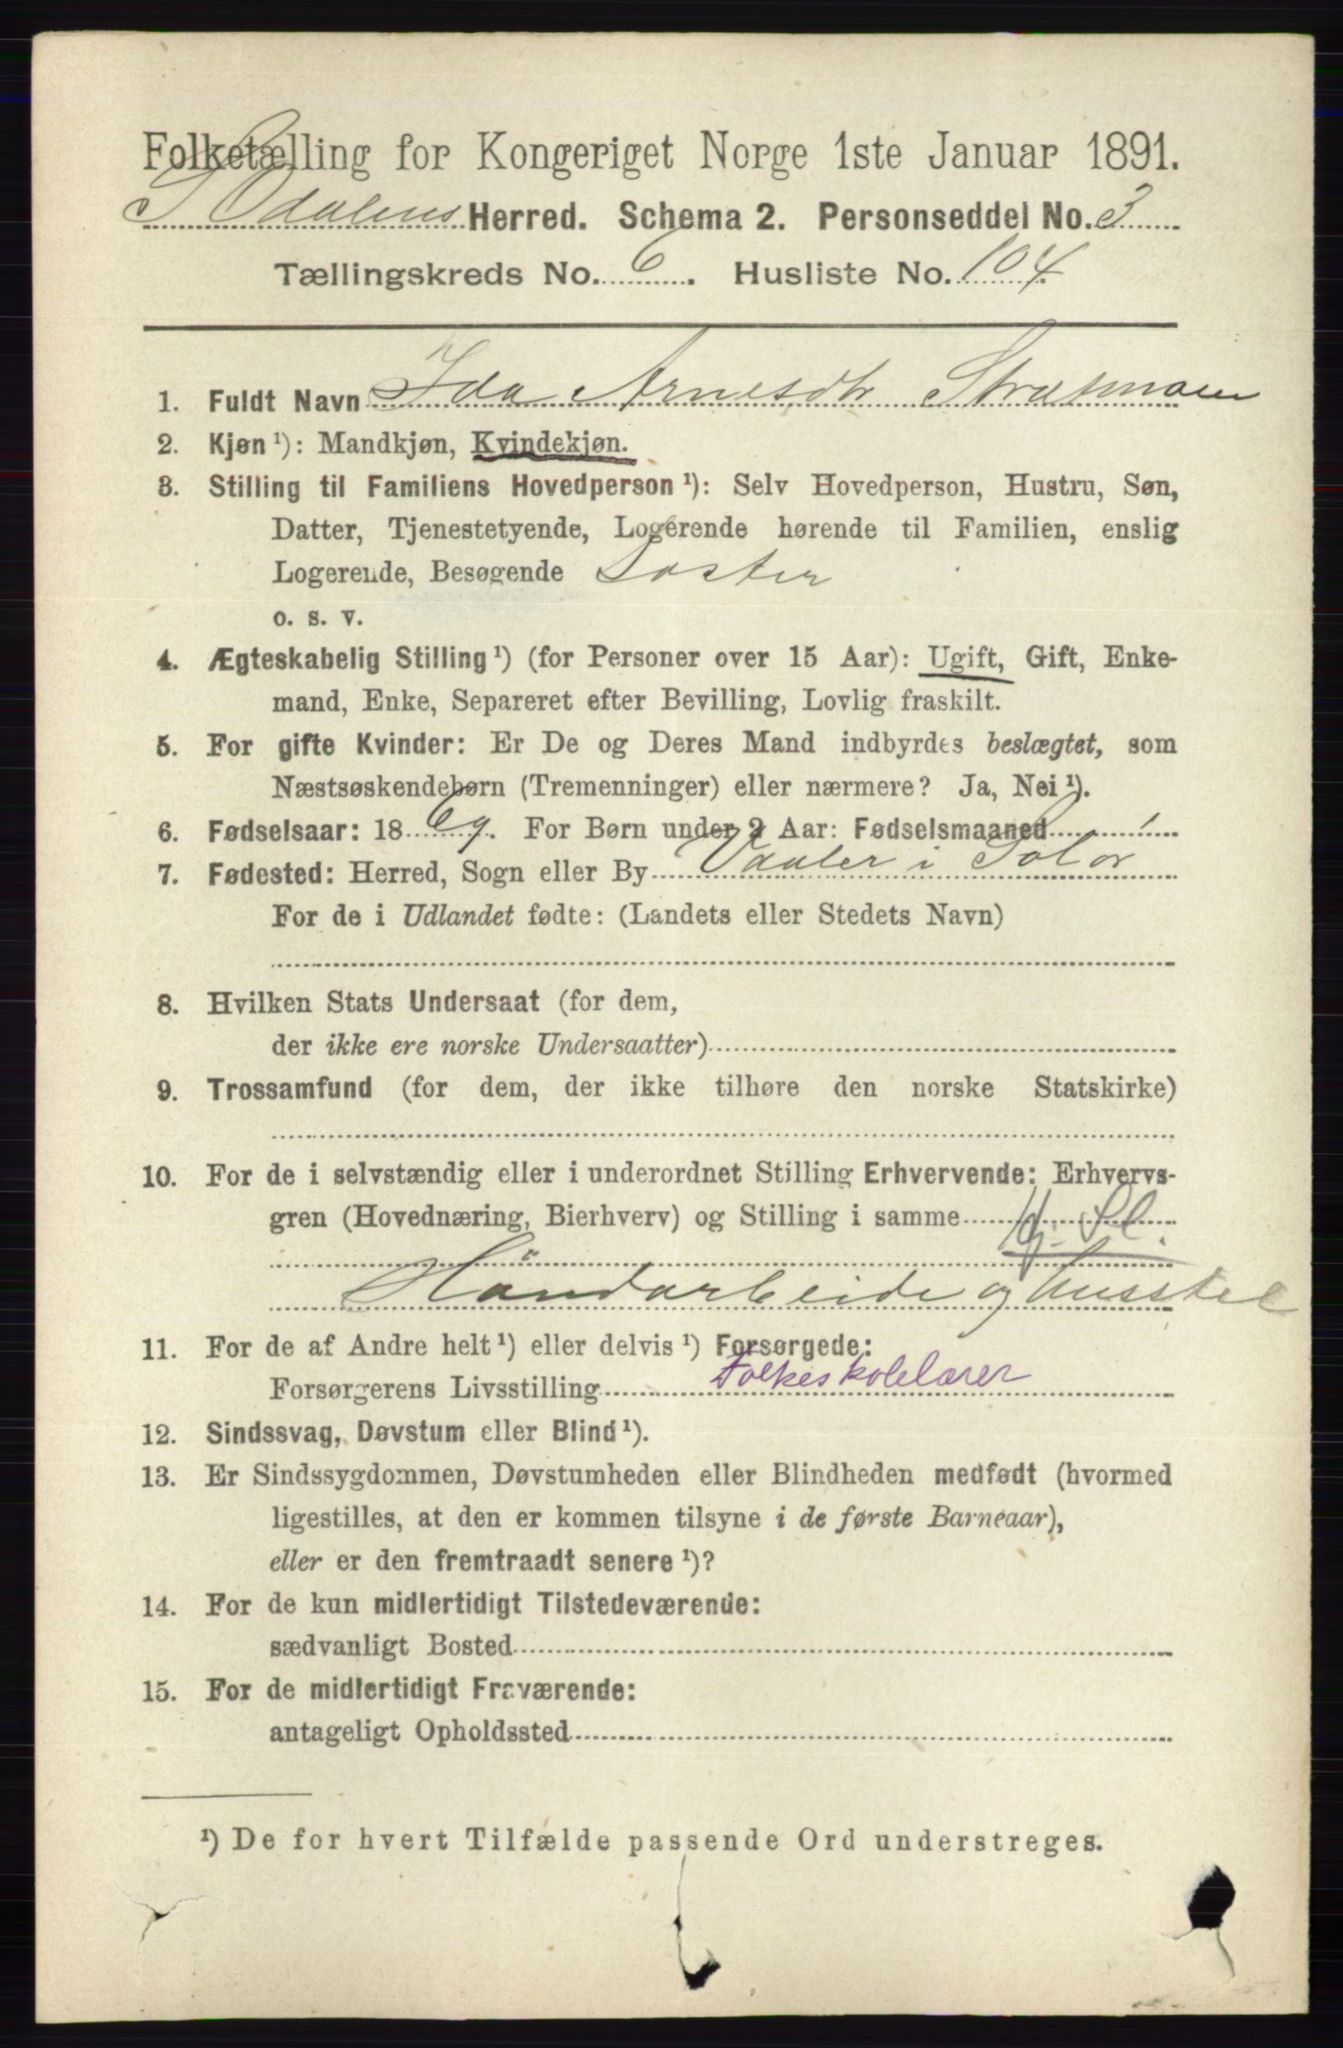 Folketælling for Kongeriget Norge 1ste Januar 1891.
S Odalens Herred. Schema 2. Personseddel No. 3
Tællingskreds No. 6. Husliste No. 104.
1. Fuldt Navn Ida Arnesdtr
2. Kjøn¹): Mandkjøn, Kvindekjøn.
3. Stilling til Familiens Hovedperson¹): Selv Hovedperson, Hustru, Søn,
Datter, Tjenestetyende, Logerende hørende til Familien, enslig
Logerende, Besøgende Søster
o. s. v.
4. Ægteskabelig Stilling¹) (for Personer over 15 Aar): Ugift, Gift, Enke-
mand, Enke, Separeret efter Bevilling, Lovlig fraskilt.
5. For gifte Kvinder: Er De og Deres Mand indbyrdes beslægtet, som
Næstsøskendebørn (Tremenninger) eller nærmere? Ja, Nei¹).
6. Fødselsaar: 1869. For Børn under 2 Aar: Fødselsmaaned
7. Fødested: Herred, Sogn eller By Vaaler i Solør
For de i Udlandet fødte: (Landets eller Stedets Navn)
8. Hvilken Stats Undersaat (for dem,
der ikke ere norske Undersaatter)
9. Trossamfund (for dem, der ikke tilhøre den norske Statskirke)
10. For de i selvstændig eller i underordnet Stilling Erhvervende: Erhvervs-
gren (Hovednæring, Bierhverv) og Stilling i samme
Håndarbeide og husstel
11. For de af Andre helt¹) eller delvis¹) Forsørgede:
Forsørgerens Livsstilling Folkeskolelærer
12. Sindssvag, Døvstum eller Blind¹).
13. Er Sindssygdommen, Døvstumheden eller Blindheden medfødt (hvormed
ligestilles, at den er kommen tilsyne i de første Barneaar),
eller er den fremtraadt senere¹)?
14. For de kun midlertidigt Tilstedeværende:
sædvanligt Bosted
15. For de midlertidigt Fraværende:
antageligt Opholdssted
¹) De for hvert Tilfælde passende Ord understreges.